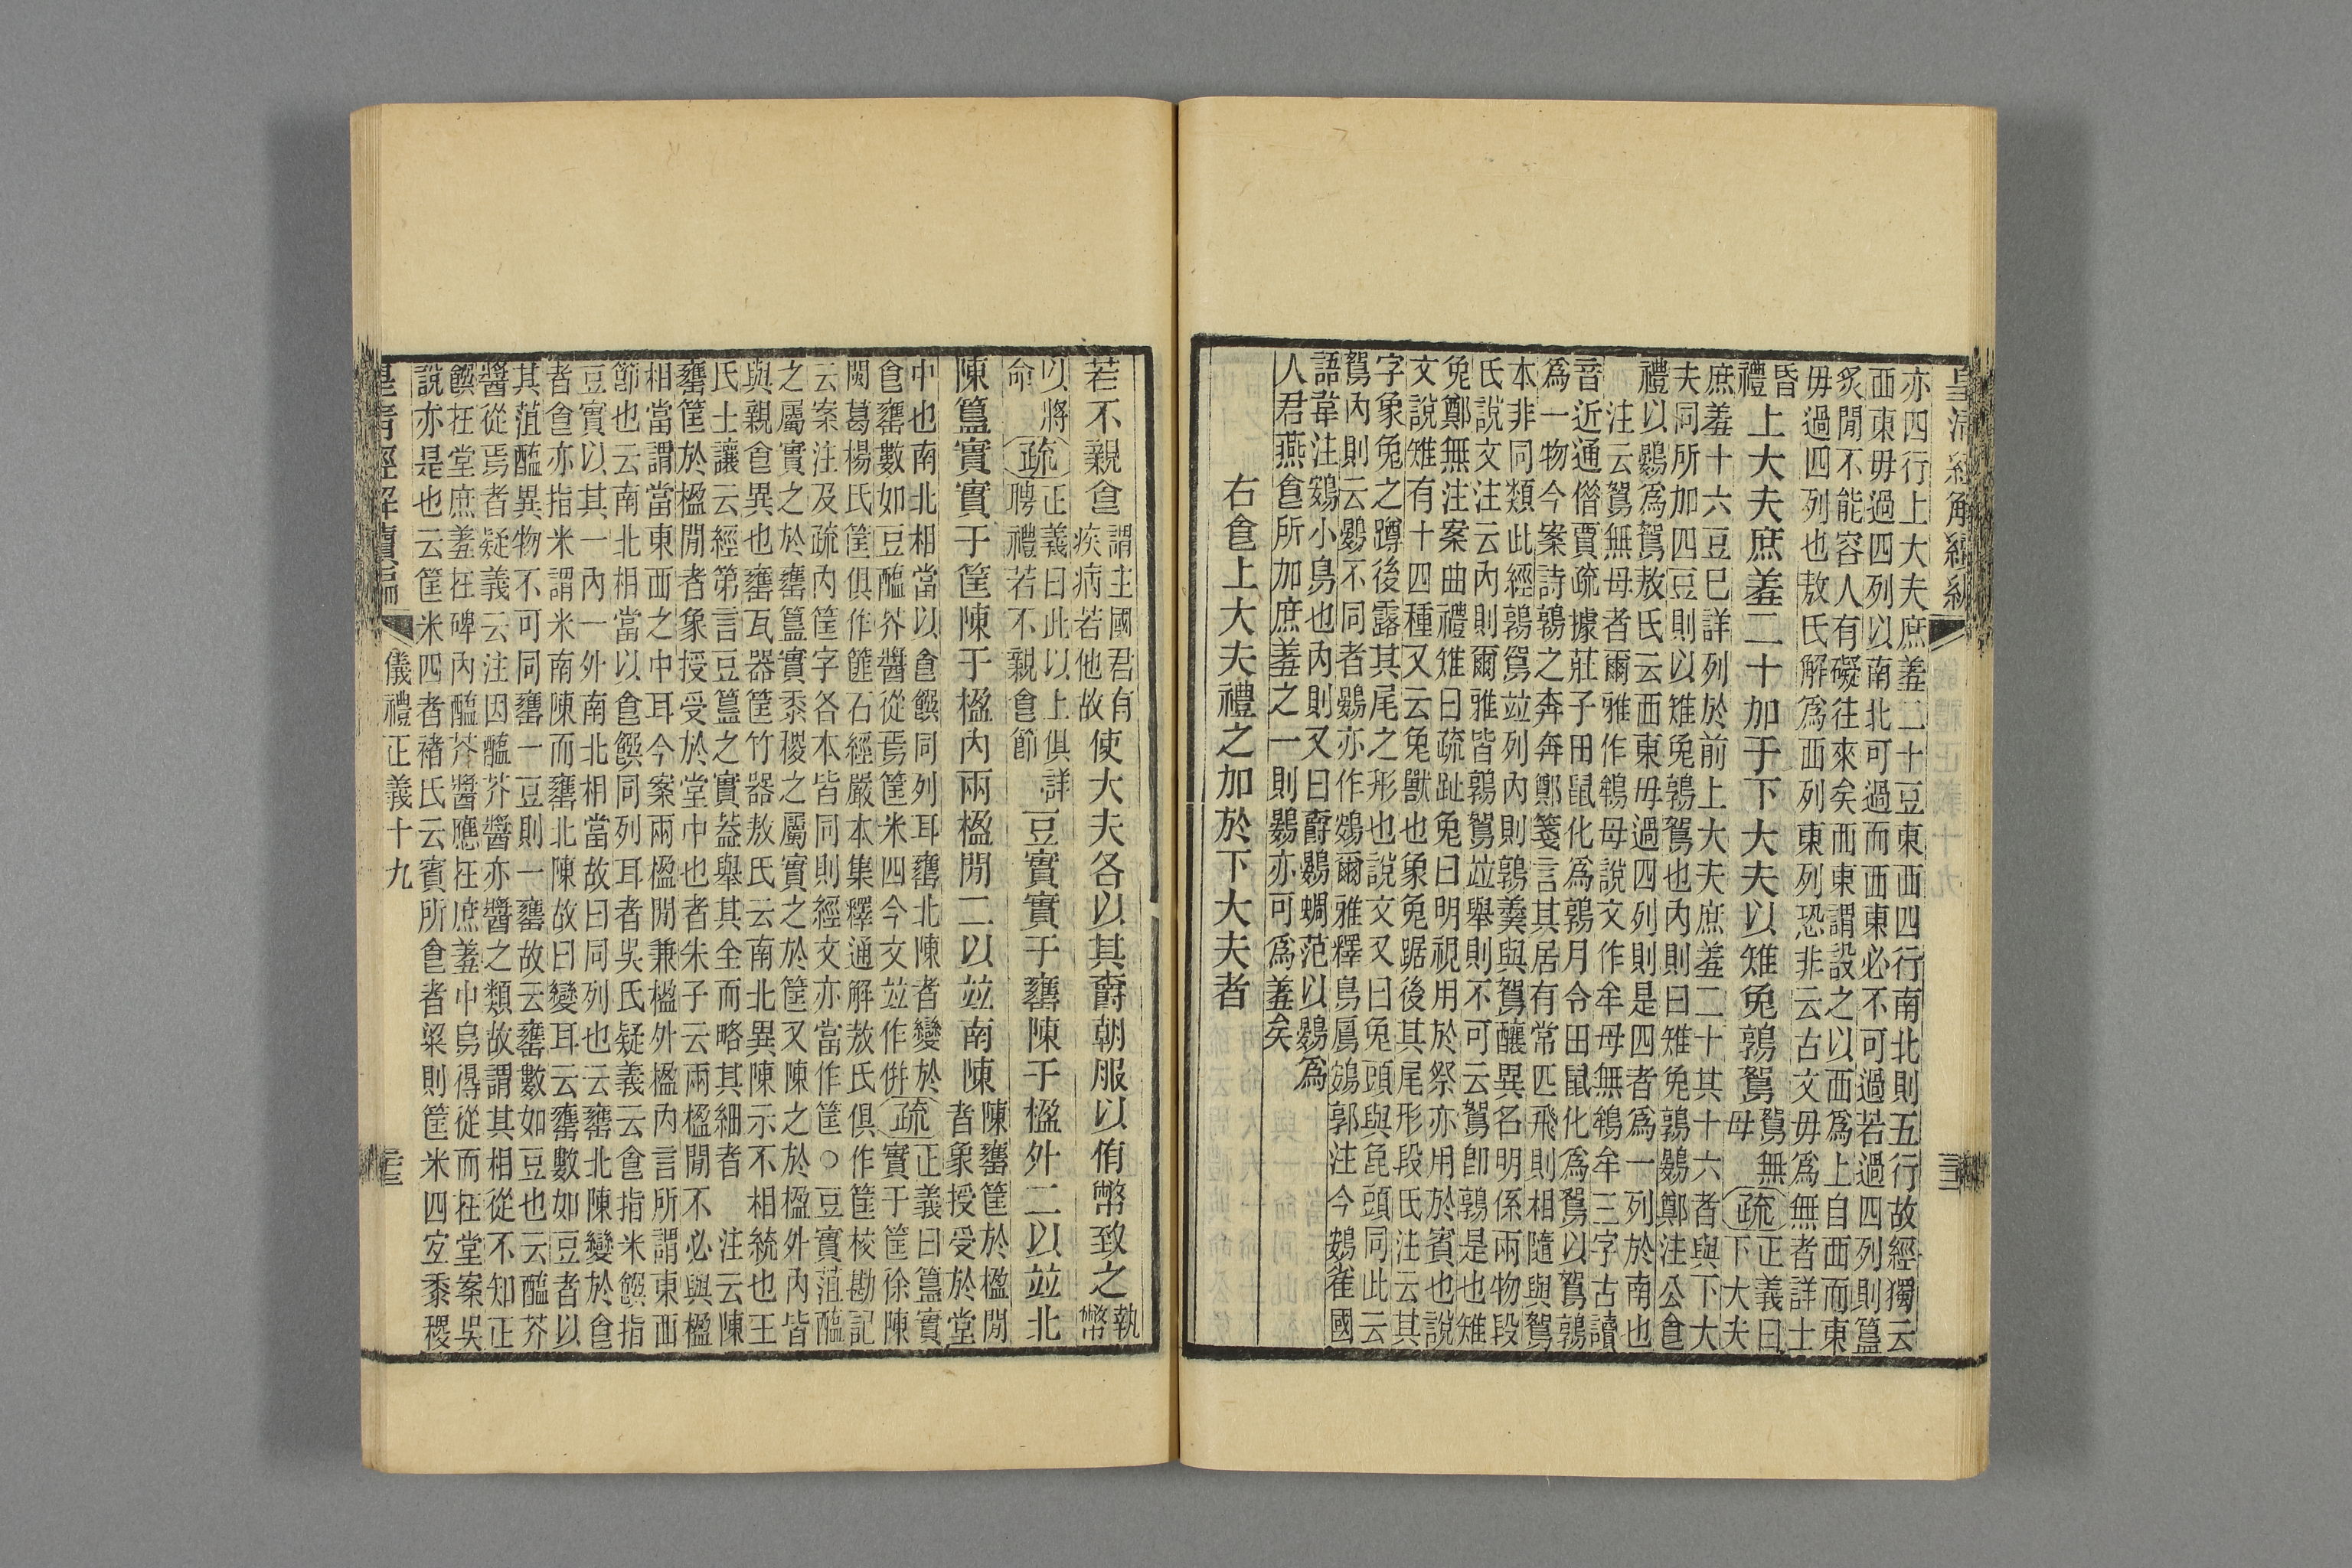 皇清經解續編
亦四行上大夫庶羞二十豆東西四行南北則五行故經獨云
西東毋過四列以南北可過而西東必不可過若過四列則簋
炙閒不能容人有礙往來矣而東謂設之以西爲上自西而東
毋過四列也敖氏解爲西列東列恐非云古文毋爲無者詳士
昏禮 上大夫庶羞二十加于下大夫以雉兔鶉鴽 鴽無母 疏 正義曰下大夫
庶羞十六豆巳詳列於前上大夫庶羞二十其十六者與下大
夫同所加四豆則以雉兔鶉鴽也內則曰雉兔鶉鷃鄭注公食
禮以鷃爲鴽敖氏云西東毋過四列則是四者爲一列於南也
注云鴽無母者爾雅作鴾母說文作牟母無鴾牟三字古讀
音近通借賈疏據莊子田鼠化爲鶉月令田鼠化爲鴽以鴽鶉
爲一物今案詩鶉之奔奔鄭箋言其居有常匹飛則相隨與鴽
本非同類此經鶉鴽竝列內則鶉羹與鴽釀異名明係兩物段
氏說文注云內則爾雅皆鶉鴽竝舉則不可云鴽卽鶉是也雉
兔鄭無注案曲禮雉曰疏趾兔曰明視用於祭亦用於賓也說
文說雉有十四種又云兔獸也象兔踞後其尾形段氏注云其
字象兔之蹲後露其尾之形也說文又曰兔頭與㲋頭同此云
鴽內則云鷃不同者鷃亦作鴳爾雅釋鳥鳸鴳郭注今鴳雀國
語韋注鴳小鳥也內則又曰爵鷃蜩范以鷃爲
人君燕食所加庶羞之一則鷃亦可爲羞矣
右食上大夫禮之加於下大夫者
若不親食 謂主國君有疾病若他故 使大夫各以其爵朝服以侑幣致之 執幣
以將命 疏 正義曰此以上俱詳聘禮若不親食節 豆實實于罋陳于楹外二以竝北
陳簋實實于筐陳于楹內兩楹閒二以竝南陳 陳罋筐於楹閒者象授受於堂
中也南北相當以食饌同列耳罋北陳者變於食罋數如豆醢芥醬從焉筐米四今文竝作併 疏 正義曰簋實實于筐徐陳
闕葛楊氏筐俱作篚石經嚴本集釋通解敖氏俱作筐校勘記
云案注及疏內筐字各本皆同則經文亦當作筐○豆實菹醢
之屬實之於罋簋實黍稷之屬實之於筐又陳之於楹外內皆
與親食異也罋瓦器筐竹器敖氏云南北異陳示不相統也王
氏士讓云經第言豆簋之實葢舉其全而略其細者 注云陳
罋筐於楹閒者象授受於堂中也者朱子云兩楹閒不必與楹
相當謂當東西之中耳今案兩楹閒兼楹外楹內言所謂東西
節也云南北相當以食饌同列耳者吳氏疑義云食指米饌指
豆實以其一內一外南北相當故曰同列也云罋北陳變於食
者食亦指米謂米南陳而罋北陳故曰變耳云罋數如豆者以
其菹醢異物不可同罋一豆則一罋故云罋數如豆也云醢芥
醬從焉者疑義云注因醯芥醬亦醬之類故謂其相從不知正
饌在堂庶羞在碑內醯芥醬應在庶羞中烏得從而在堂案吳
說亦是也云筐米四者褚氏云賓所食者粱則筐米四宐黍稷
皇清經解續編 儀禮正義十九